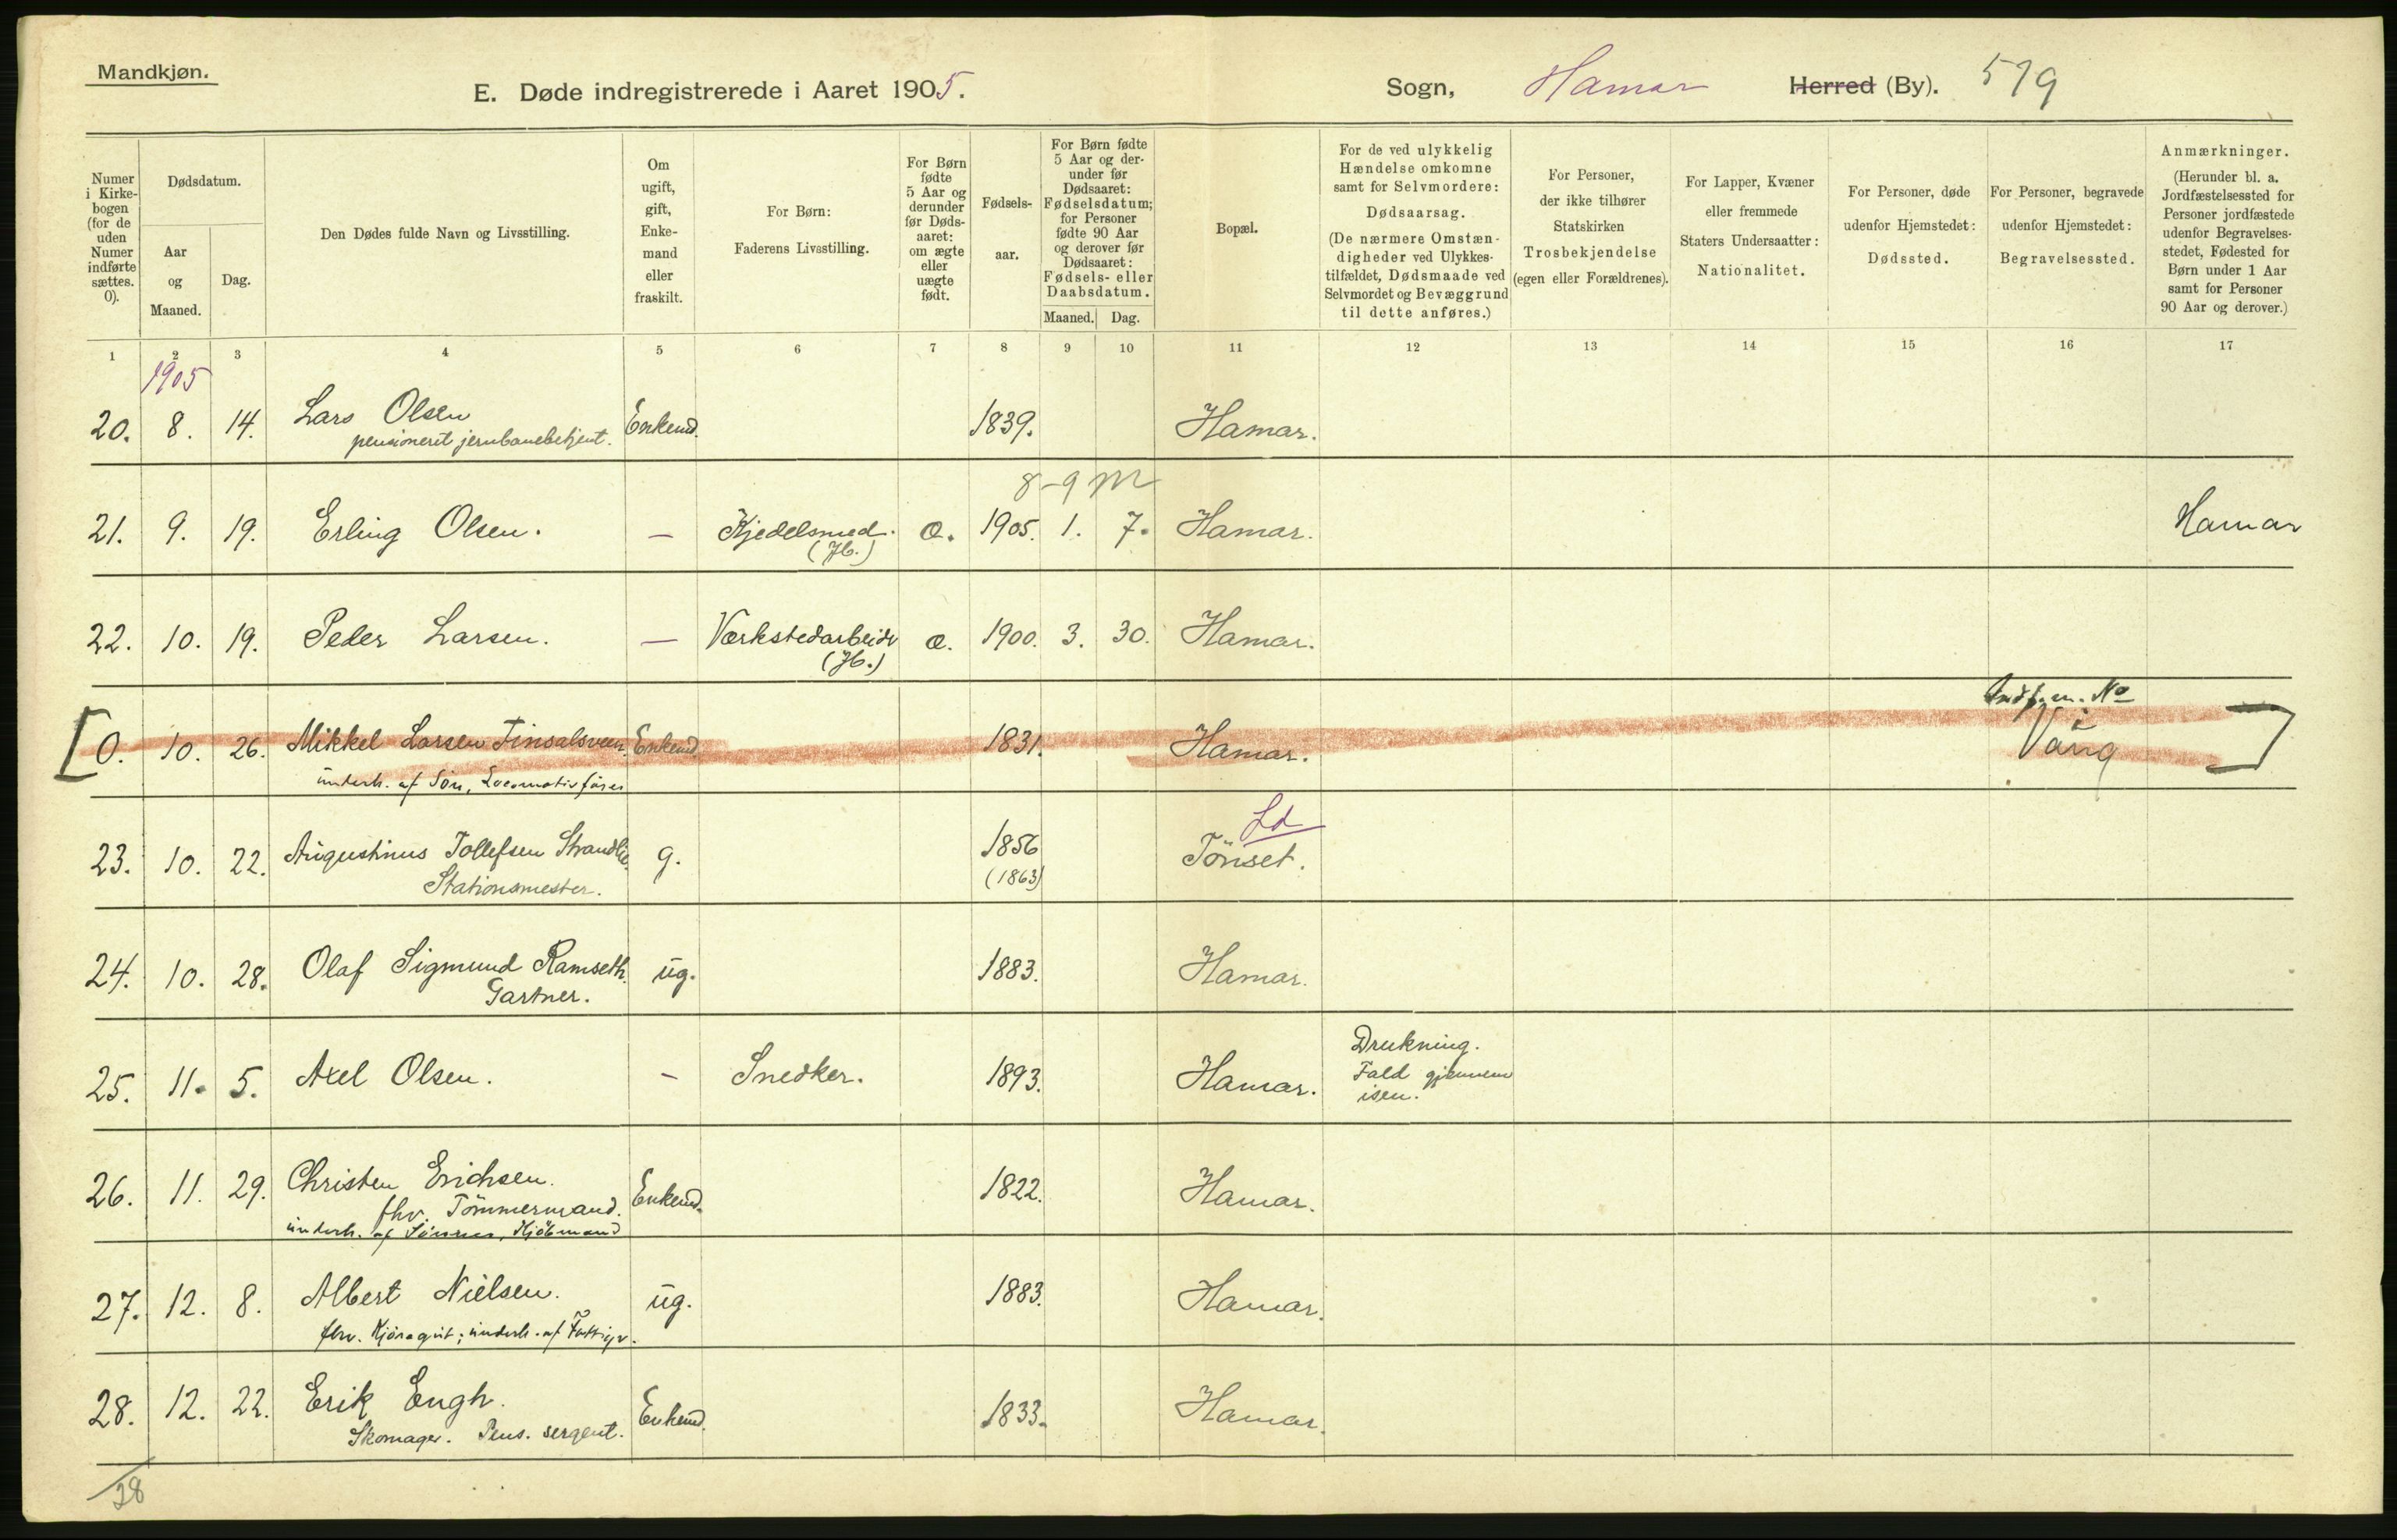 Mandkjøn.
E. Døde indregistrerede i Aaret 1905.
Sogn, Hamar Herred (By). 519
Numer
i Kirke-
bogen
(for de
uden
Numer
indførte
sættes.
0).
Dødsdatum.
Aar
og
Maaned.
Dag.
Den Dødes fulde Navn og Livsstilling.
Om
ugift,
gift,
Enke-
mand
eller
fraskilt.
For Børn:
Faderens Livsstilling.
For Børn
fødte
5 Aar og
derunder
før Døds-
aaret:
om ægte
eller
uægte
født.
Fødsels-
aar.
For Børn fødte
5 Aar og der-
under før
Dødsaaret:
Fødselsdatum;
for Personer
fødte 90 Aar
og derover før
Dødsaaret:
Fødsels- eller
Daabsdatum.
Maaned. Dag.
Bopæl.
For de ved ulykkelig
Hændelse omkomne
samt for Selvmordere:
Dødsaarsag.
(De nærmere Omstæn-
digheder ved Ulykkes-
tilfældet, Dødsmaade ved
Selvmordet og Bevæggrund
til dette anføres.)
For Personer,
der ikke tilhører
Statskirken
Trosbekjendelse
(egen eller Forældrenes).
For Lapper, Kvæner
eller fremmede
Staters Undersaatter:
Nationalitet.
For Personer, døde
udenfor Hjemstedet:
Dødssted.
For Personer, begravede
udenfor Hjemstedet:
Begravelsessted.
Anmærkninger.
(Herunder bl. a.
Jordfæstelsessted for
Personer jordfæstede
udenfor Begravelses-
stedet, Fødested for
Børn under 1 Aar
samt for Personer
90 Aar og derover.)
1 2 3 4 5 6 7 8 9 10 11 12 13 14 15 16 17
1905
20. 8. 14. Lars Olsen Enkemd. 1839. Hamar.
pensioneret jernbanebetjent.
8-9 M
21. 9. 19. Erling Olsen. — Kjedelsmed. æ. 1905. 1. 7. Hamar. Hamar
(Jb.)
22. 10. 19. Peder Larsen. — Værkstedarbeidr æ. 1900. 3. 30. Hamar.
(Jb.)
[0. 10. 26. Mikkel Larsen Finsalsveen. Enkemd. 1831. Hamar. Vang]
underh. af Søn, Locomotivfører
Ld
23. 10. 22. Augustinus Tollefsen Strandlie. g. 1856 Tönset.
Stationsmester. (1863)
24. 10. 28. Olaf Sigmund Ramseth. ug. 1883. Hamar.
Gartner.
25. 11. 5. Axel Olsen. - Snedker. 1893. Hamar. Drukning.
Fald gjennem
isen.
26. 11. 29. Christen Erichsen. Enkemd. 1822. Hamar.
fhv. Tömmermand.
underh. af Sönnen, Kjöbmand
27. 12. 8. Albert Nielsen. ug. 1883. Hamar.
fhv. underh. af Fattigv.
28. 12. 22. Erik Engh. Enkemd. 1833. Hamar.
Skomager. Pens. sergent.
28